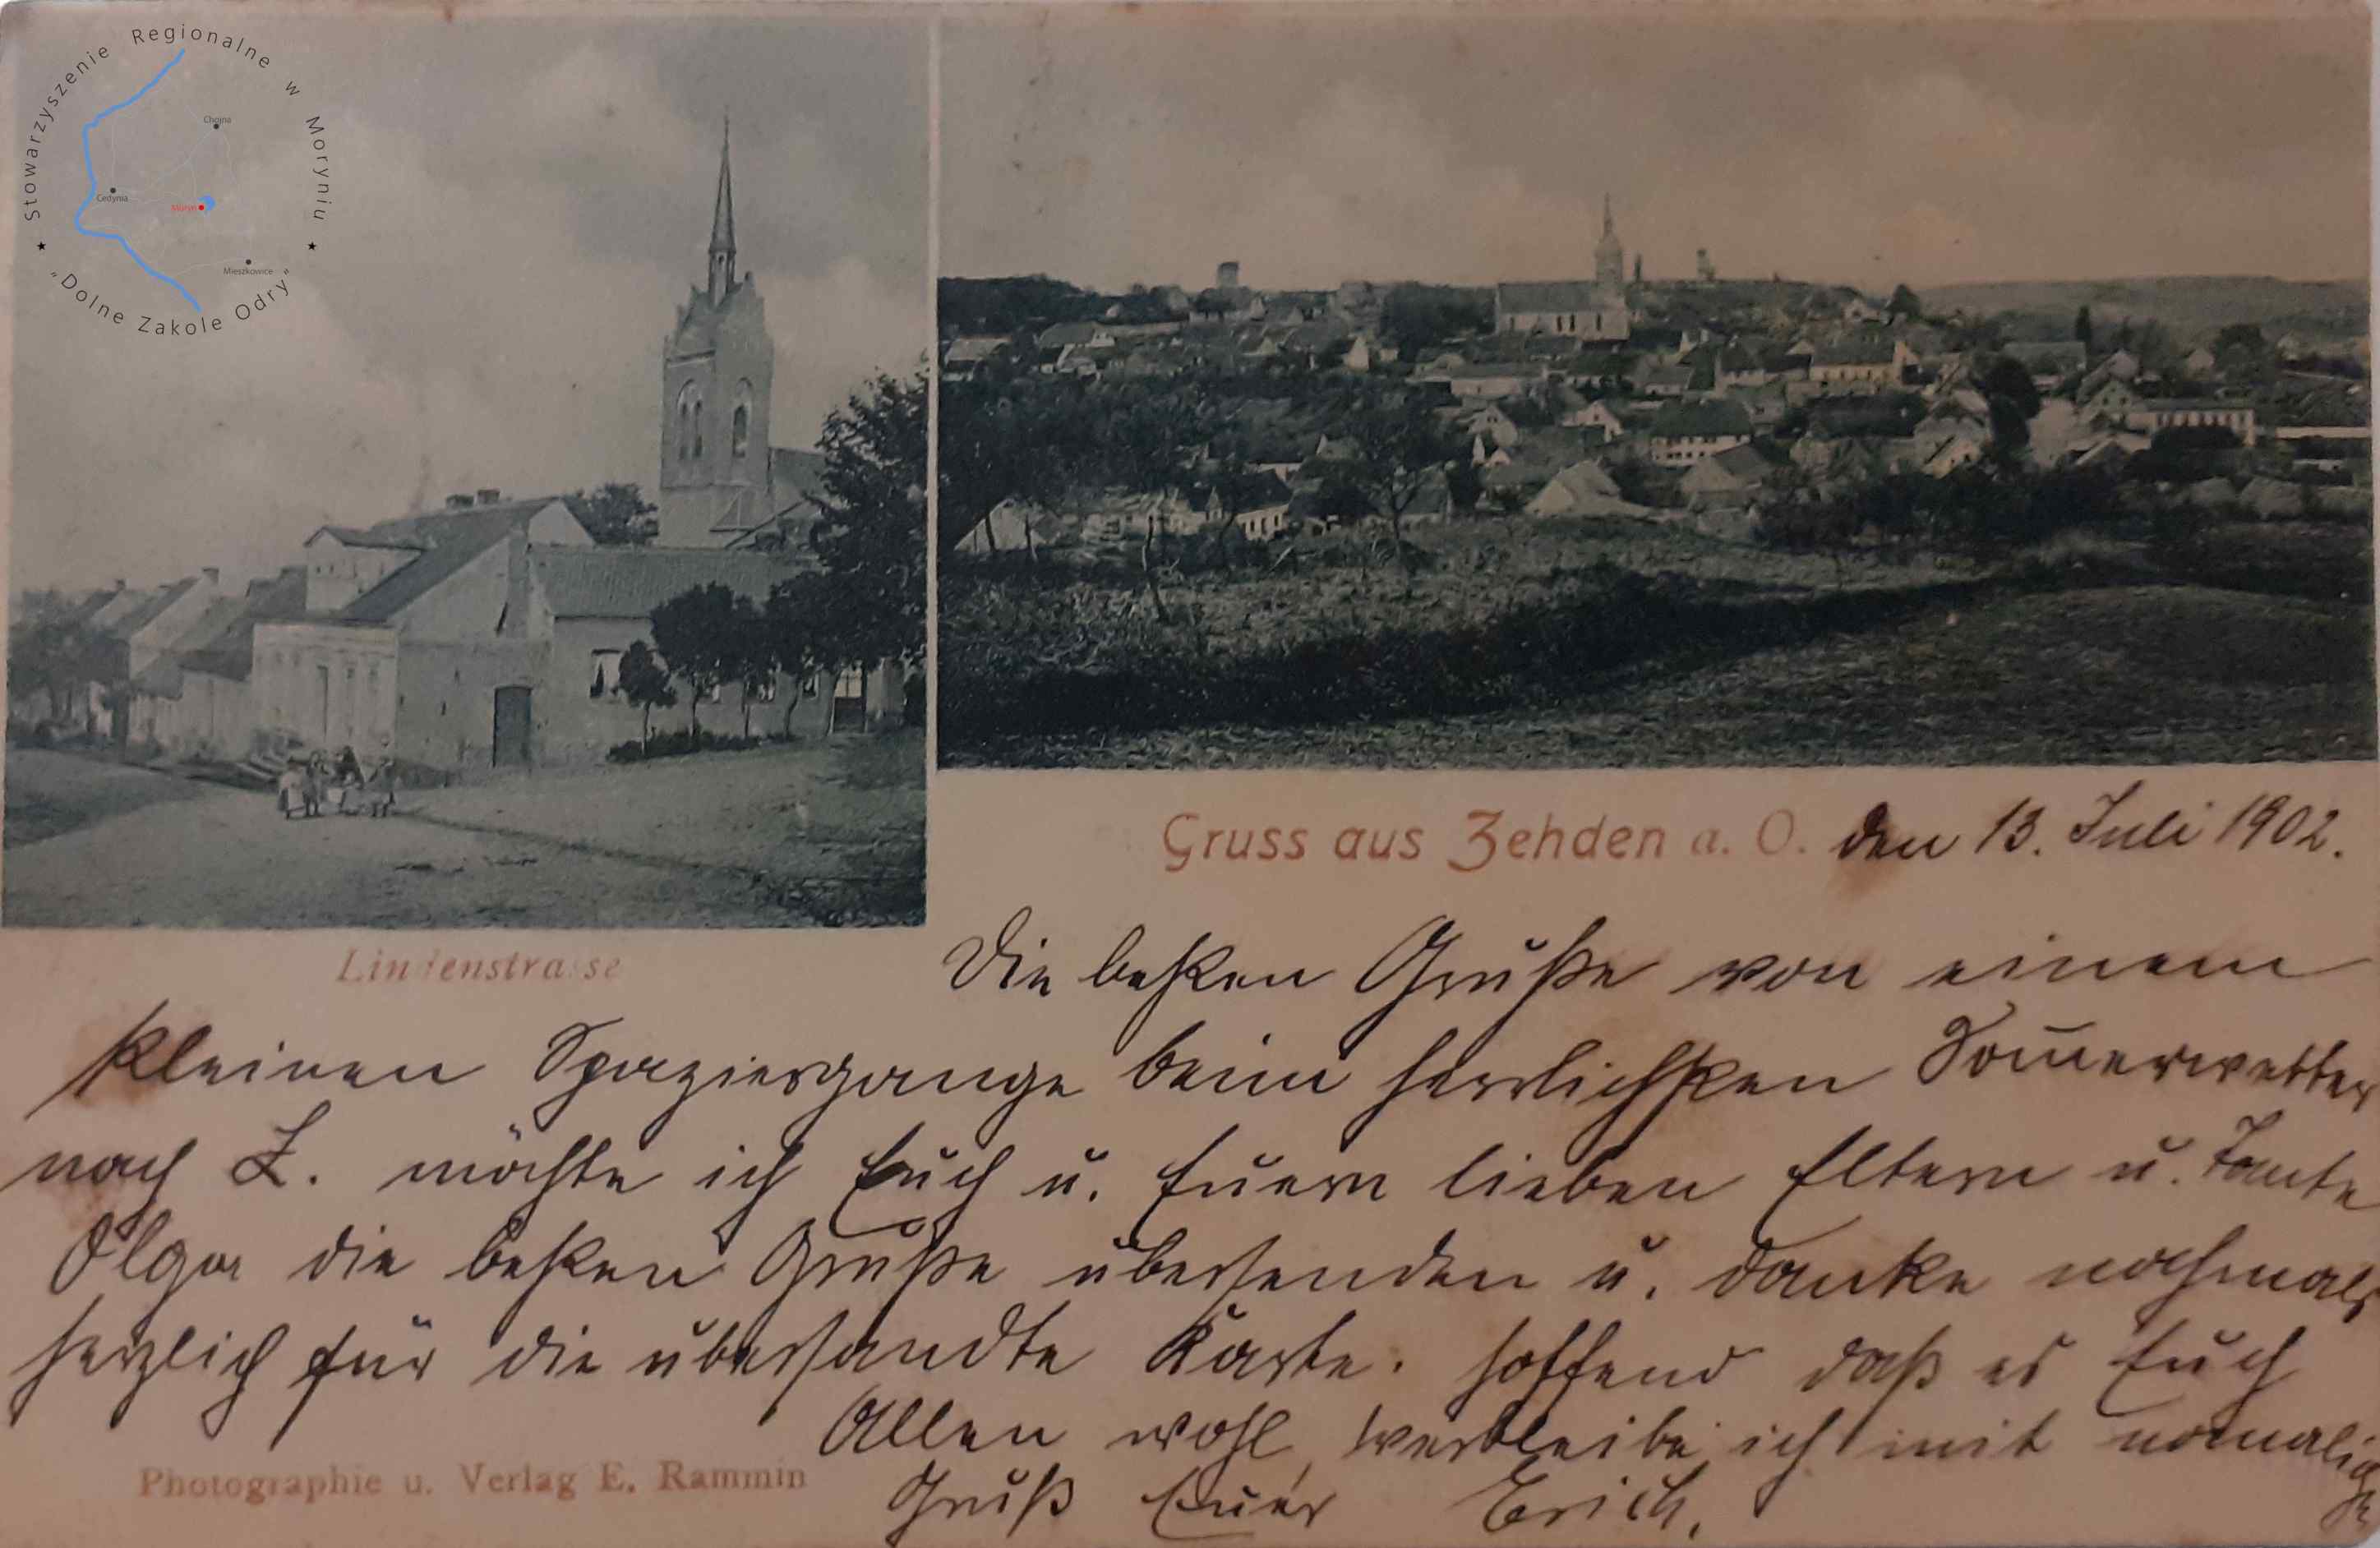 Stowarzyszenie Regionalne w Moryniu
Chojna
Cedynia
Moryń
Mieszkowice
"Dolne Zakole Odry"
Gruss aus Zehden a. O. den 13. Juli 1902.
Lindenstrasse
Die besten Grüße von einem
kleinen Spaziergange beim herrlichsten Som̅erwetter
nach Z. möchte ich Euch u. Euern lieben Eltern u. Tante
Olga die besten Grüße übersenden u. danke nochmals
herzlich für die übersandte Karte. Hoffend daß es Euch
Allen wohl, verbleibe ich mit
Photographie u. Verlag E. Rammin
Gruß Euer Erich.